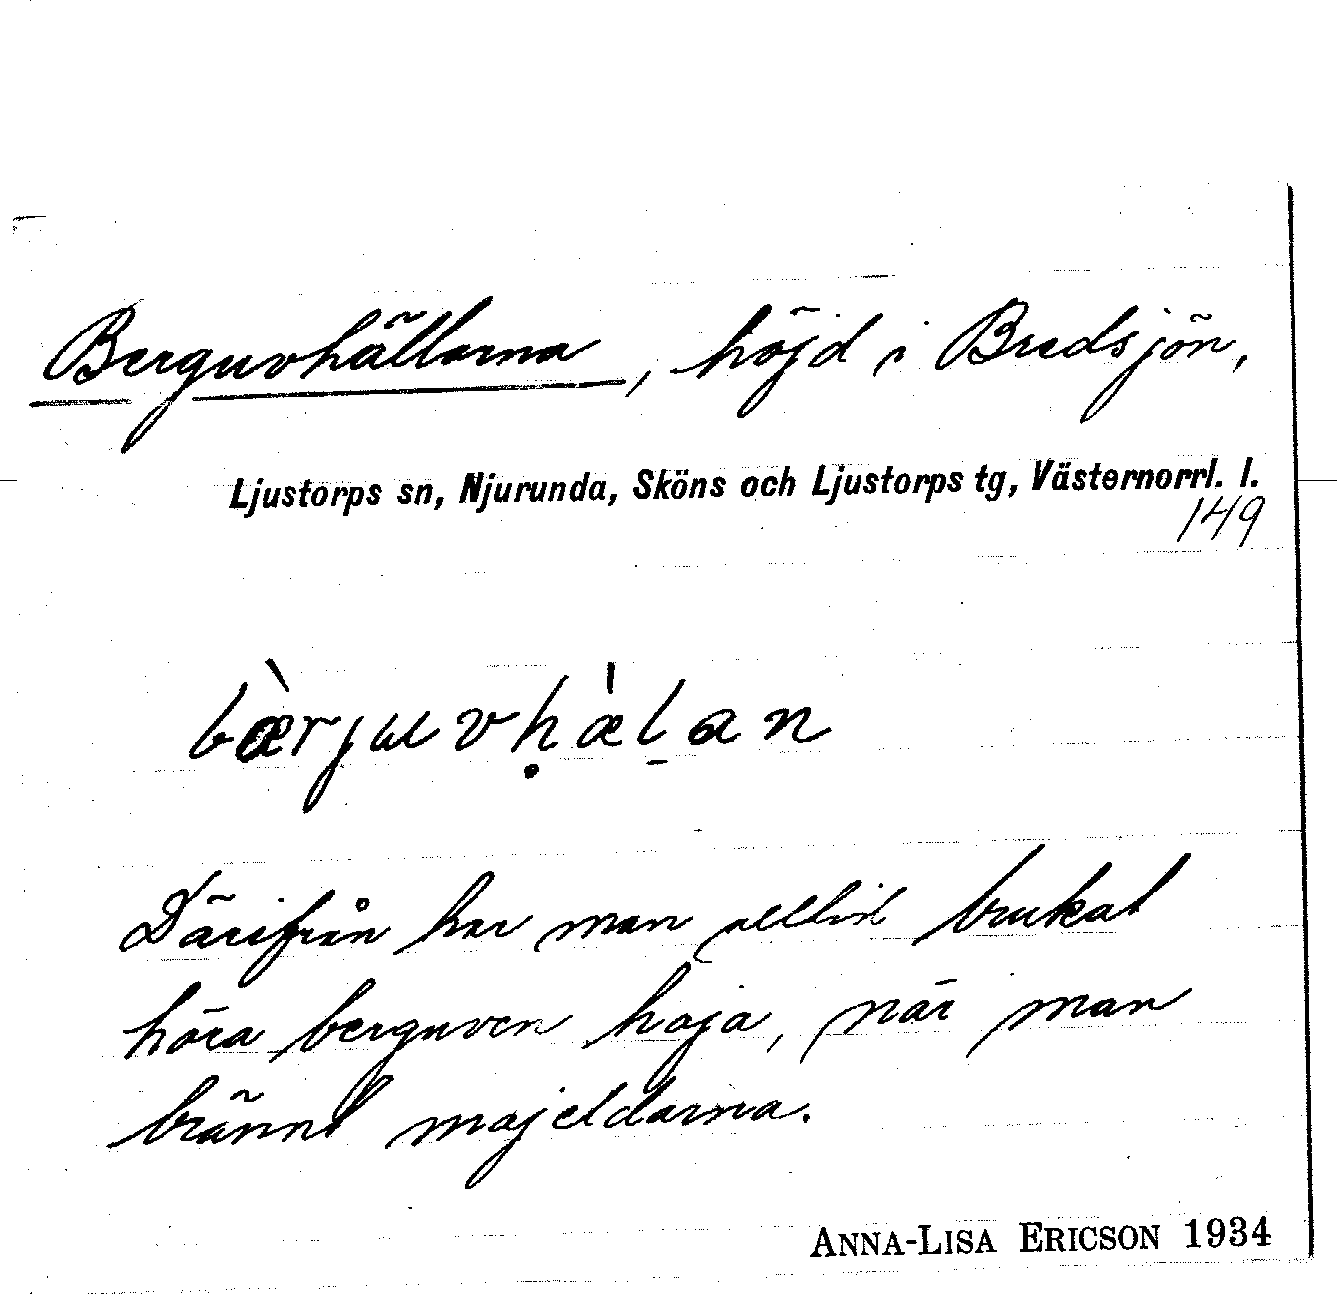 Berguvhällarna, höjd i Bredsjön,
Ljustorps sn, Njurunda, Sköns och Ljustorps tg, Västernorrl. l.
149
bæ̀rjuvḥæ̀l̠an
Därifrån har man alltid brukat
höra berguven hoja, när man
bränt majeldarna.
ANNA-LISA ERICSON 1934